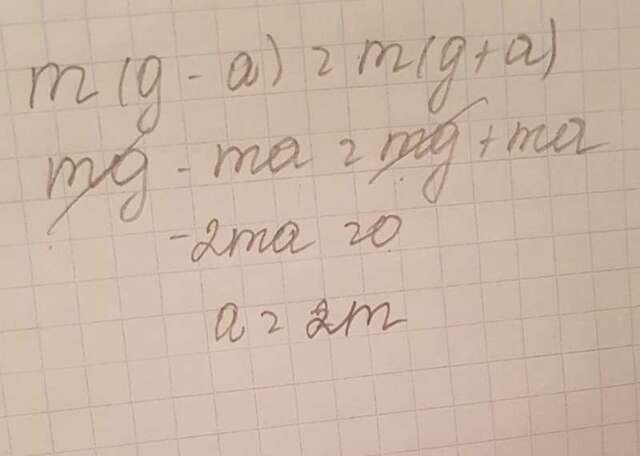 m(g-a) = m(g+a)
mg - ma = mg + ma
-2ma = 0
a = 2m